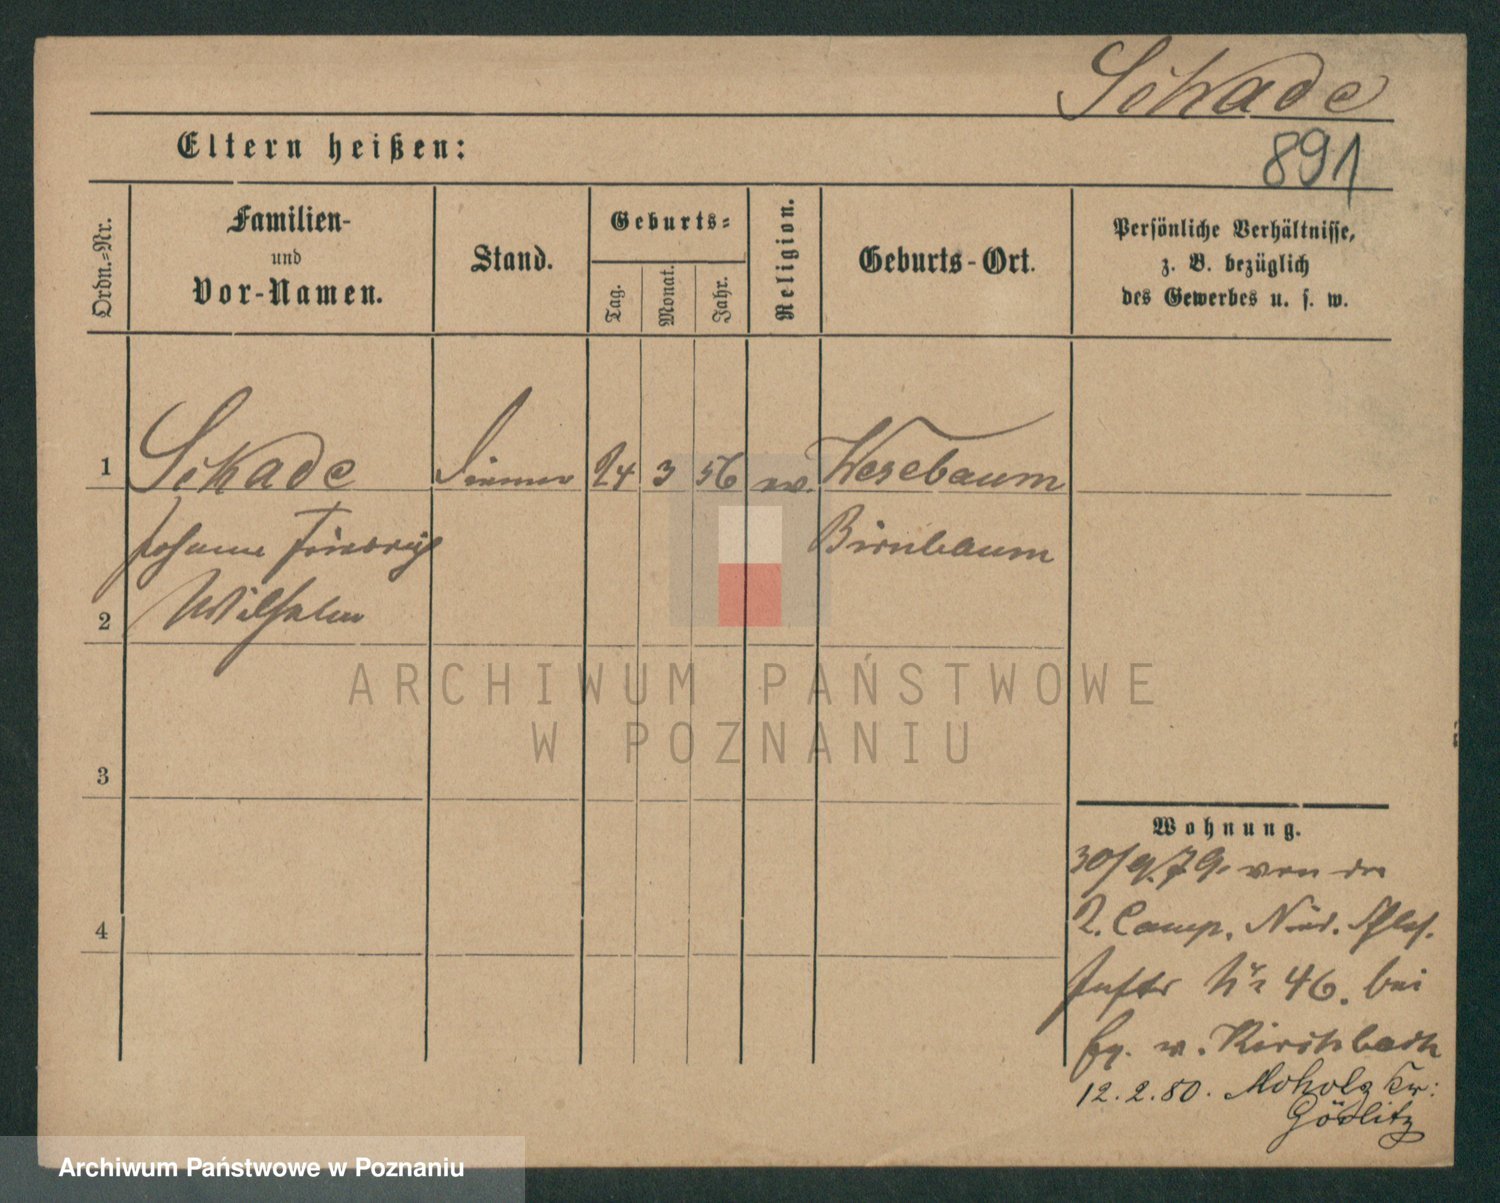 Schade
891
Eltern heißen:
Ordn.-Nr.
Familien-
und
Vor-Namen.
Stand.
Geburts-
Tag.
Monat.
Jahr.
Religion.
Geburts-Ort.
Persönliche Verhältnisse,
z. B. bezüglich
des Gewerbes u. s. w.
1 Schade Diener 24 3 56 ev. Wesebaum
Johann Friedrich Birnbaum
2 Wilhelm
ARCHIWUM PAŃSTWOWE
W POZNANIU
3
Wohnung.
30/9.79. von der
2. Comp. Nied. Schles.
4
Inftr Nr 46. bei
v. Kirchbach
12.2.80. Moholz Kr:
Görlitz
Archiwum Państwowe w Poznaniu